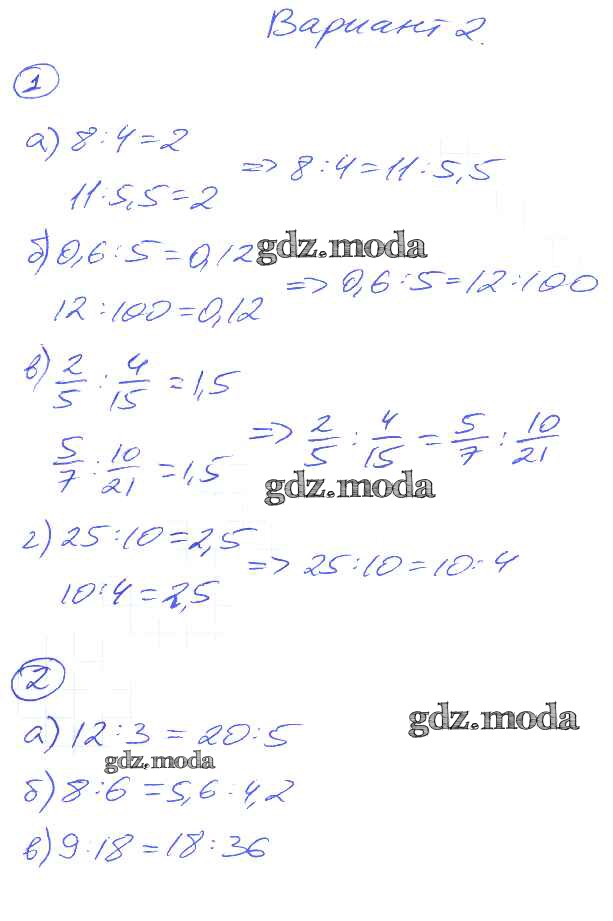 Вариант 2.
1
а) 8 : 4 = 2
=> 8 : 4 = 11 : 5,5
11 : 5,5 = 2
б) 0,6 : 5 = 0,12
gdz.moda
=> 0,6 : 5 = 12 : 100
12 : 100 = 0,12
в) 2/5 : 4/15 = 1,5
=> 2/5 : 4/15 = 5/7 : 10/21
5/7 : 10/21 = 1,5
gdz.moda
г) 25 : 10 = 2,5
=> 25 : 10 = 10 : 4
10 : 4 = 2,5
2
gdz.moda
а) 12 : 3 = 20 : 5
gdz.moda
б) 8 : 6 = 5,6 : 4,2
в) 9 : 18 = 18 : 36